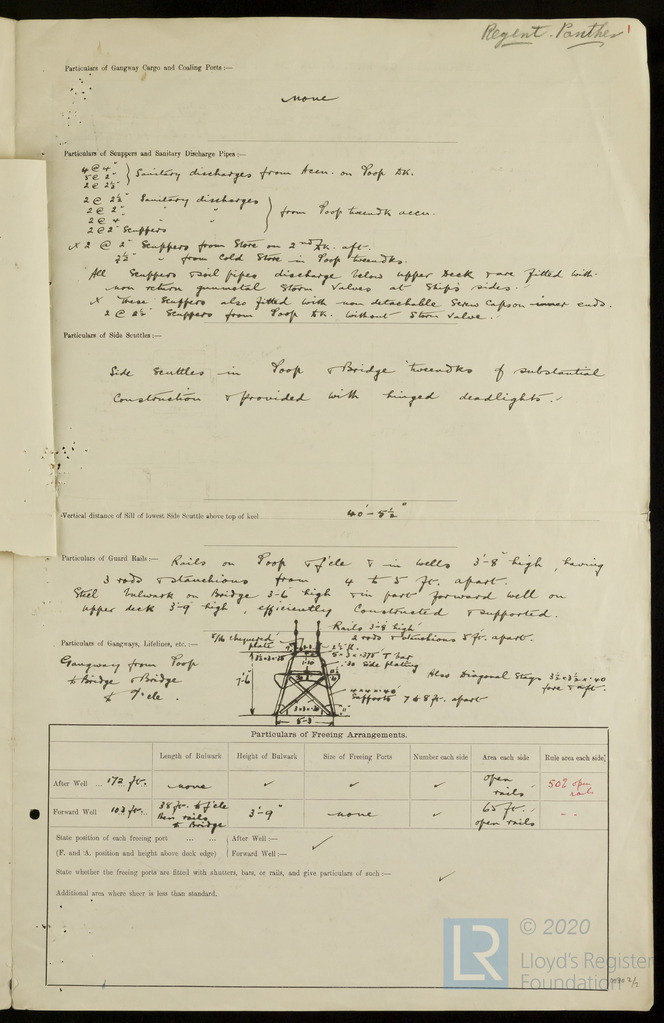 Regent Panther 1
Particulars of Gangway Cargo and Coaling Ports :—
None
Particulars of Scuppers and Sanitary Discharge Pipes :—
4 @ 4"
5 @ 2" Sanitary discharges from Accn. on Poop Dk.
2 @ 2½"
2 @ 2½" Sanitary discharges
2 @ 2" " "
2 @ 4 " " from Poop tweendk accn.
2 @ 2" Scuppers
X 2 @ 2" Scuppers from Store on 2nd Dk. aft.
" from Cold Store in Poop tweendks.
All Scuppers & soil pipes discharge below upper Deck & are fitted with
non return gunmetal Storm Valves at Ships sides.
X These Scuppers also fitted with non detachable Screw Caps on inner ends.
2 @ 2½" Scuppers from Poop Dk. without Storm Valve.
Particulars of Side Scuttles :—
Side Scuttles in Poop & Bridge tweendks of substantial
Construction & provided with hinged deadlights.
Vertical distance of Sill of lowest Side Scuttle above top of keel
40'-5½"
Particulars of Guard Rails :— Rails on Poop & f'cle & in wells 3'-8" high, having
3 rods & stanchions from 4 to 5 ft. apart.
Steel bulwark on Bridge 3'-6 high & in part forward well on
upper deck 3'-9 high, efficiently Constructed & supported.
Rails 3'-8 high
2 rods & stanchions 5 ft. apart.
Particulars of Gangways, Lifelines, etc. :—
5/16 chequered plate
T bar
.30 Side plating
Gangway from Poop
to Bridge & Bridge
to F'cle.
7'-6
Also Diagonal Stays 3½ x 3½ x .40
fore & aft.
4 x 4 x .40
Supports 7 to 8 ft. apart
5-3
Particulars of Freeing Arrangements.
Length of Bulwark Height of Bulwark Size of Freeing Ports Number each side Area each side Rule area each side
After Well ... 172 ft. none ✓ ✓ ✓ open rails 50% open rails
Forward Well 103 ft. 38 ft. to f'cle then rails to Bridge 3'-9" none ✓ 65 ft. open rails - -
State position of each freeing port ... ... After Well :—
(F. and A. position and height above deck edge) Forward Well :—
✓
State whether the freeing ports are fitted with shutters, bars, or rails, and give particulars of such :—
✓
Additional area where sheer is less than standard.
LR © 2020
Lloyd's Register
Foundation